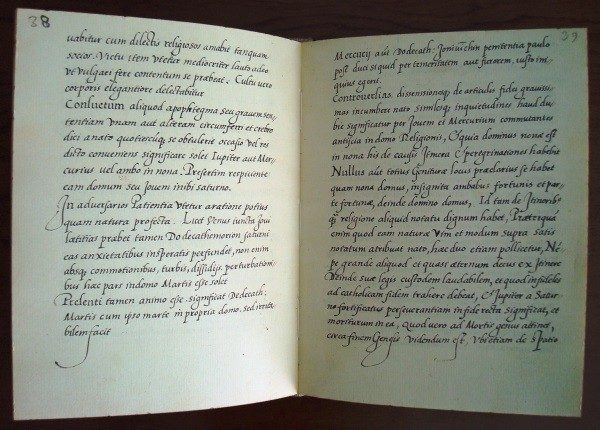 38
uabitur cum dilectis religiosos amabit tanquam
socios. Victu item vtetur mediocriter lauto adeo
vt vulgari fere contentum se præbeat. Cultu vero
corporis elegantiore delectabitur
Consuetum aliquod apophtegma seu grauem sen,
tentiam vnam aut alteram circumfert et crebro
dici a nato quotiescūq; se obtulerit occasio vel res
dicto conueniens significare solet Iupiter aut Mer,
curius vel ambo in nona. Presertim respiciente
eam domum seu Jouem inibi saturno.
In aduersario Patientia vtetur aratione potius
quam natura profecta. Licet Venus iuncta
lætitias prabet tamen Dodecathemorion satiani
eas anxietatibus insperatis perfundet, non enim
absq; commotionibus, turbis, dissidijs, perturbatiom,
bus hæc pars in domo Martis esse solet
Prelenti tamen animo esse significat Dodecath:
Martis cum ipso marte in propria domo. Sed irrita,
bilem facit
39
Mercurij aut Dodecath. Jouiuichin penitentia paulo
post duci siquid per temeritatem aut furorem, iusto ini,
quius egerit.
Controuersias, dissensionesq; de articulis fidei grauissi,
mas incumbere nato simulq; inquietudines haud du,
bie significatur per Jouem et Mercurium commutantes
antijcia in domo Religionis, & quia dominus nonæ est
in nona his de causis Jtinera & peregrinationes habebit
Nullus aut totius Genituræ locus præclarius se habet
quam nona domus, insignita ambabus fortunis et par,
te fortunæ, deinde domino domus, Id tam de Jtineribꝰ
q̃ religione aliquid notatu dignum habet, Præterquā
enim quod eam naturæ vim et modum supra satis
notatum atribuat nato, hæc duo etiam pollicetur, Nē,
pe grande aliquod et quasi æternum decus ex Jtinere
Deinde suæ legis custodem laudabilem, et quod infideles
ad catholicam fidem trahere debeat, & Jupiter a Satur,
no fortificatus perseuerantiam in fide recta significat, et
moriturum in ea, quod vero ad Mortis genus attinet,
circa finem Genesis videndum est. Vbi etiam de spatio